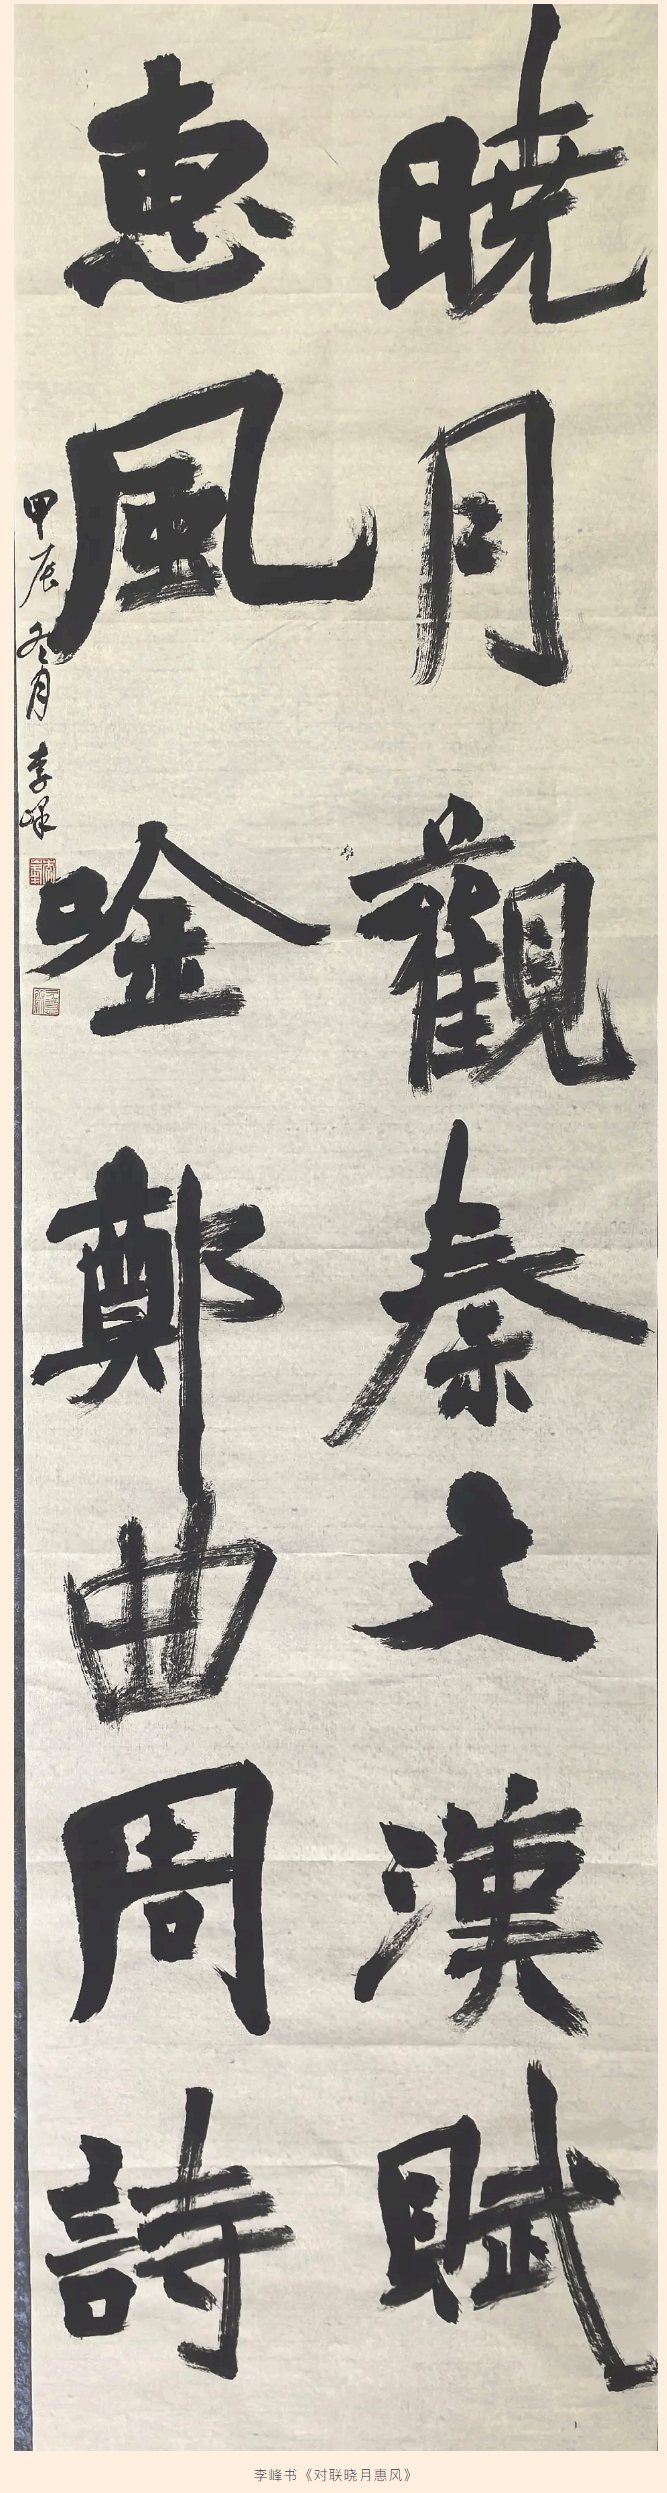 暁月觀秦文漢賦
惠風唫鄭曲周詩
甲辰冬月李峰
李峰书《对联晓月惠风》